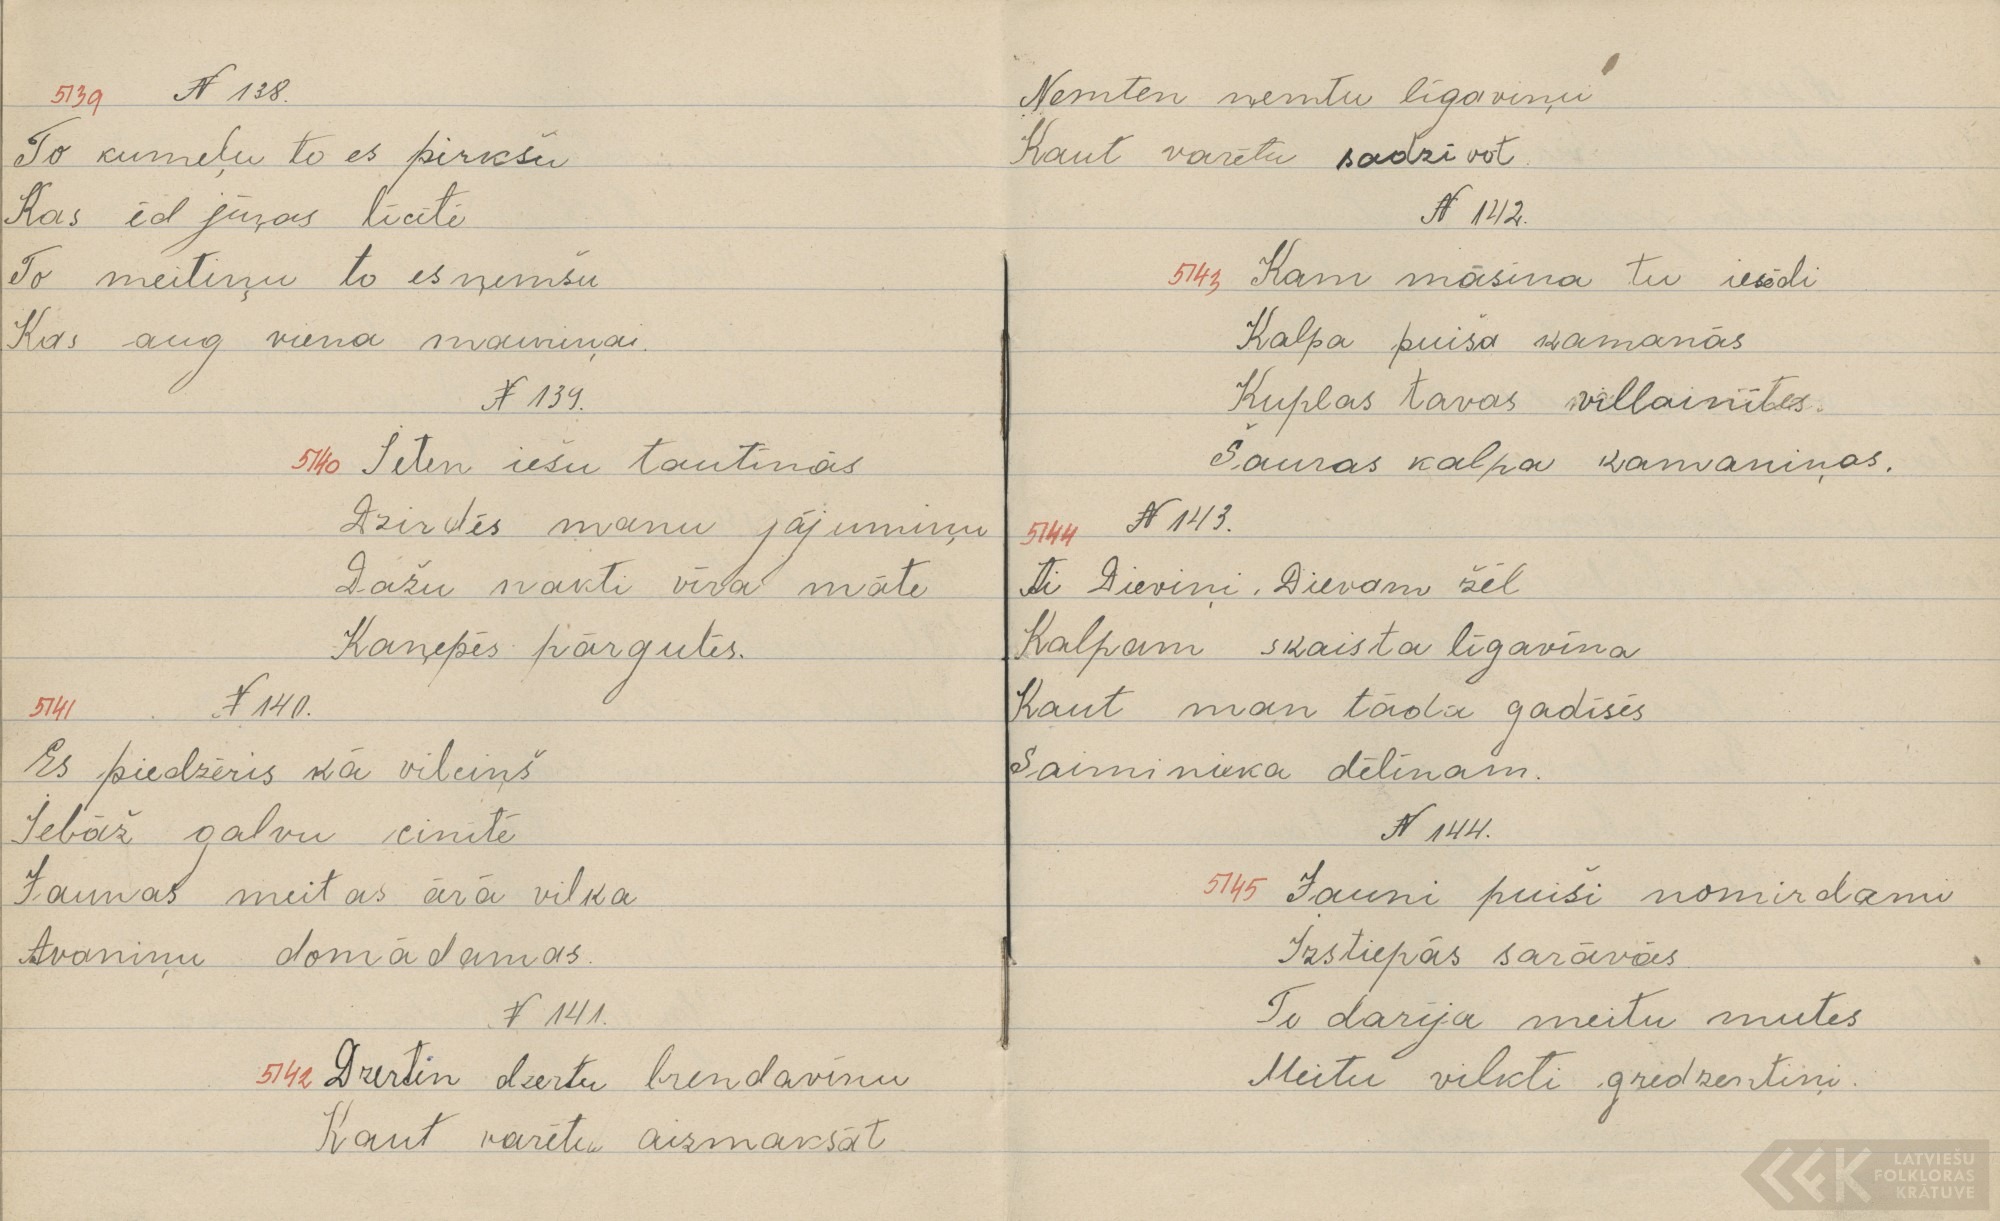 5139 № 138.
To kumeļu to es pirkšu
Kas ēd jūŗas līcītē
To meitiņu to es ņemšu
Kas aug viena mamiņai.
№ 139.
5140 Ieten iešu tautinās
Dzirdēs manu jājumiņu
Dažu nakti vīra māte
Kaņepēs pārgulēs.
5141 № 140.
Es piedzēris kā vilciņš
Iebāž galvu cinītē
Jaunas meitas ārā vilka
Avaniņu domādamas.
№ 141.
5142 Dzertin dzertu brendavīnu
Kaut varētu aizmaksāt
Ņemten ņemtu līgaviņu
Kaut varētu sadzīvot.
№ 142.
5143 Kam māsina tu iesēdi
Kalpa puiša kamanās
Kuplas tavas villainītes.
Šauras kalpa kamaniņas.
5144 № 143.
Ai Dieviņi, Dievam žēl
Kalpam skaista līgavīna
Kaut man tāda gadīsēs
Saiminieka dēlīnam.
№ 144.
5145 Jauni puiši nomirdami
Izstiepās sarāvās
To darīja meitu mutes
Meitu vilkti gredzentiņi.
LATVIEŠU
FOLKLORAS
KRĀTUVE